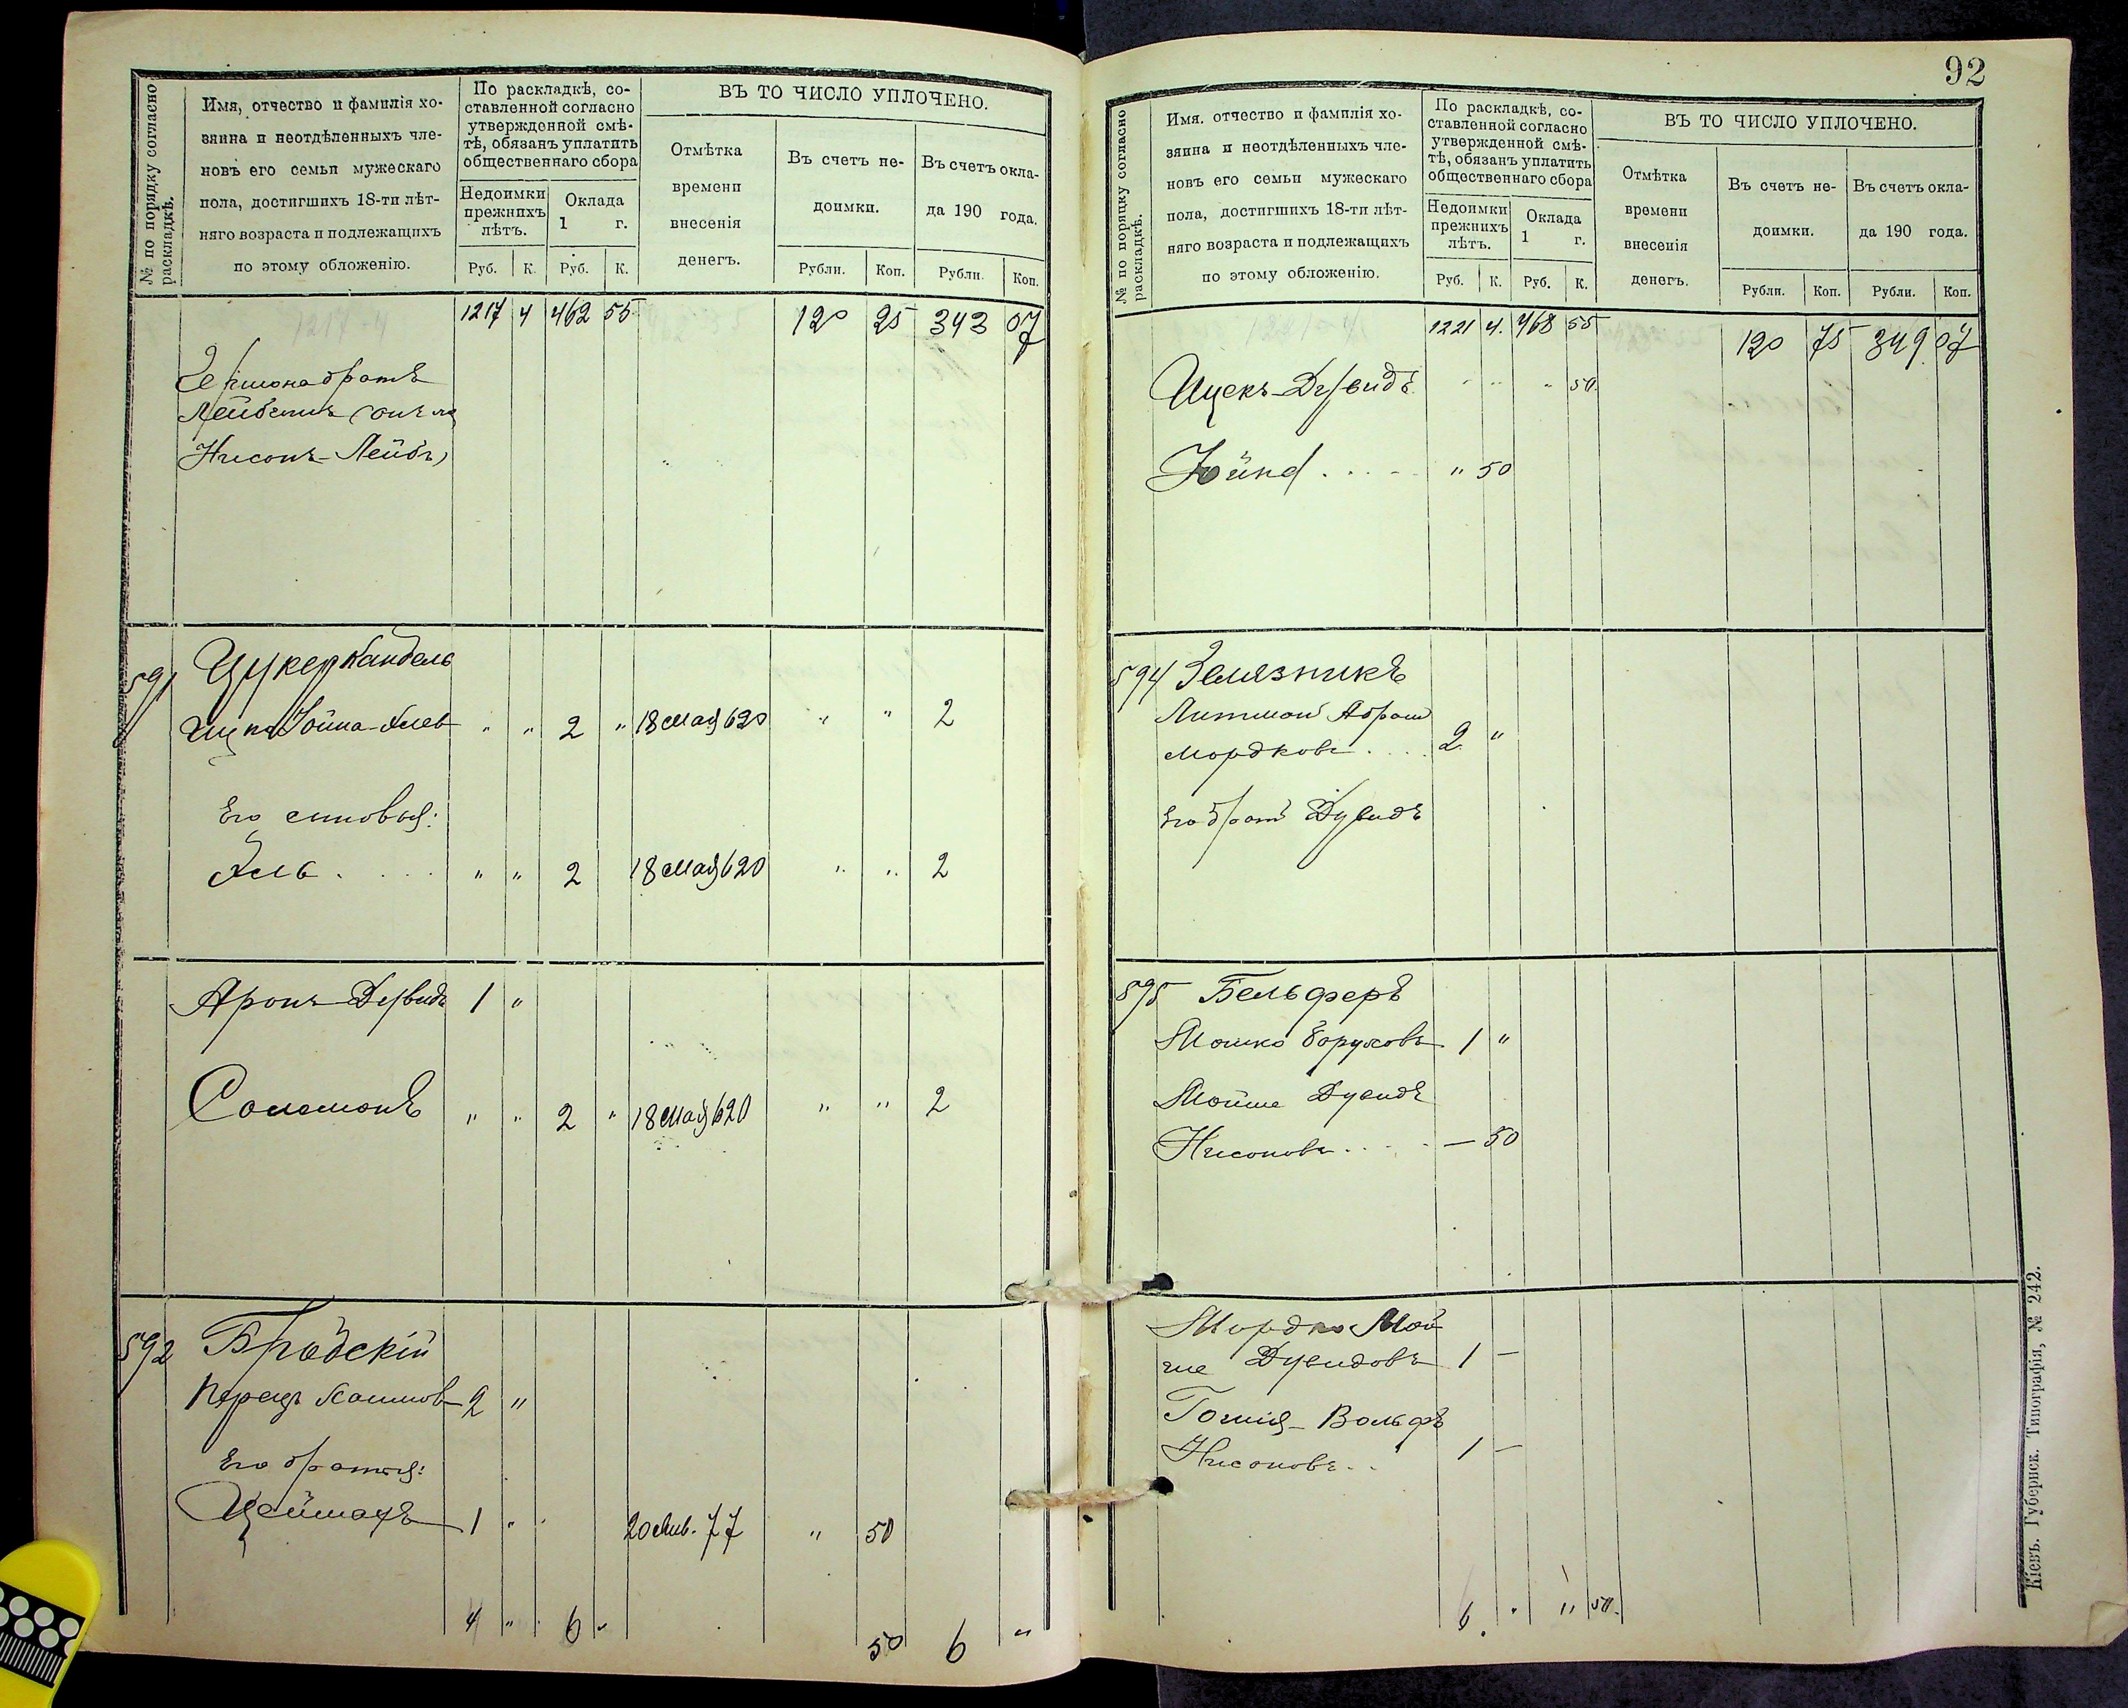 № по порядку согласно раскладкѣ.
Имя, отчество и фамилія хо-
зяина и неотдѣленныхъ чле-
новъ его семьи мужескаго
пола, достигшихъ 18-ти лѣт-
няго возраста и подлежащихъ
по этому обложенію.
По раскладкѣ, со-
ставленной согласно
утвержденной смѣ-
тѣ, обязанъ уплатить
общественнаго сбора
Недоимки
прежнихъ
лѣтъ.
Оклада
1 г.
Руб. К. Руб. К.
ВЪ ТО ЧИСЛО УПЛОЧЕНО.
Отмѣтка
времени
внесенія
денегъ.
Въ счетъ не-
доимки.
Въ счетъ окла-
да 190 года.
Рубли. Коп. Рубли. Коп.
1217 4 462 55 120 25 343 07
братъ
Нисонъ-Лейбъ)
591 Цукеркандель
" " 2 " 18 мая 620 " " 2
Его сыновья:
" " 2 18 мая 620 " " 2
Аронъ Дувидъ 1 "
Соломонъ " " 2 " 18 мая 620 " " 2
592 Бродскій
Перецъ Хаимов 2 "
Его братья:
1 " 20 Янв. 77 " 50
4 " 6 " 50 6 "
92
№ по порядку согласно раскладкѣ.
Имя. отчество и фамилія хо-
зяина и неотдѣленныхъ чле-
новъ его семьи мужескаго
пола, достигшихъ 18-ти лѣт-
няго возраста и подлежащихъ
по этому обложенію.
По раскладкѣ, со-
ставленной согласно
утвержденной смѣ-
тѣ, обязанъ уплатить
общественнаго сбора
Недоимки
прежнихъ
лѣтъ.
Оклада
1 г.
Руб. К. Руб. К.
ВЪ ТО ЧИСЛО УПЛОЧЕНО.
Отмѣтка
времени
внесенія
денегъ.
Въ счетъ не-
доимки.
Въ счетъ окла-
да 190 года.
Рубли. Коп. Рубли. Коп.
1221 4. 468 55 120 75 349 07
Ицекъ-Дувидъ " " " 50
" 50
594 Зелизникъ
Абрам
Мордковъ 2 "
Его братъ Дувидъ
595 Бельферъ
Мошко Боруховъ 1 "
Мойше Дувидъ
Нисоновъ — 50
Мордко Мой
ше Дувидовъ 1 —
Вольфъ
Нисоновъ 1 —
6 " " 50
Кіевъ. Губернск. Типографія, № 242.